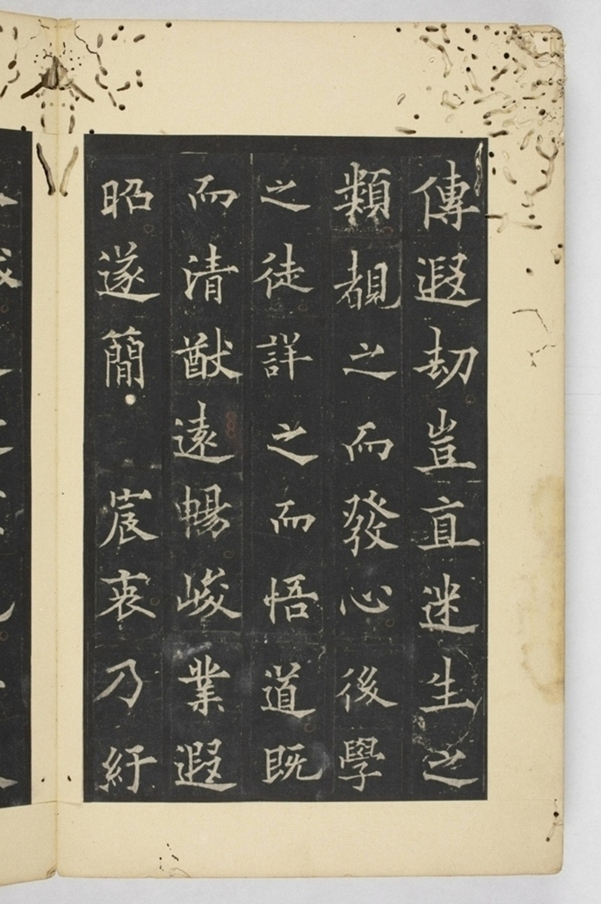 傳遐劫豈直迷生之
類覩之而發心後學
之徒詳之而悟道既
而清猷遠暢峻業遐
昭遂簡宸衷乃紆